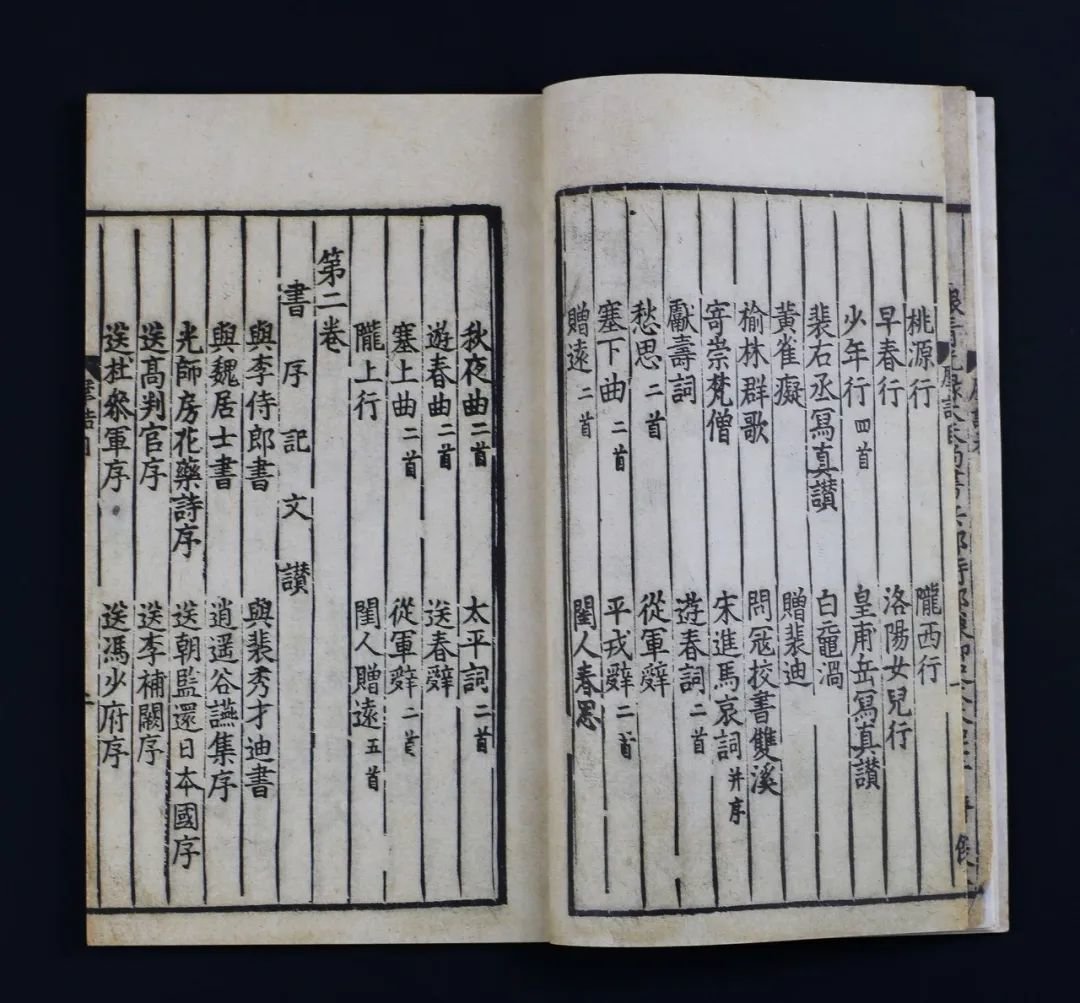 桃源行 隴西行
早春行 洛陽女兒行
少年行四首 皇甫岳寫真讃
裴右丞寫真讃 白黿渦
黄雀癡 贈裴迪
榆林群歌 問冦挍書雙溪
寄崇梵僧 宋進馬哀詞并序
獻壽詞 遊春詞二首
愁思二首 從軍辤
塞下曲二首 平戎辤二首
贈遠二首 閨人春思
秋夜曲二首 太平詞二首
遊春曲二首 送春辤
塞上曲二首 從軍辤二首
隴上行 閨人贈遠五首
第二卷
書序記文讃
與李侍郎書 與裴秀才迪書
與魏居士書 逍遥谷讌集序
光師房花藥詩序 送朝監還日本國序
送高判官序 送李補闕序
送杜叅軍序 送馮少府序